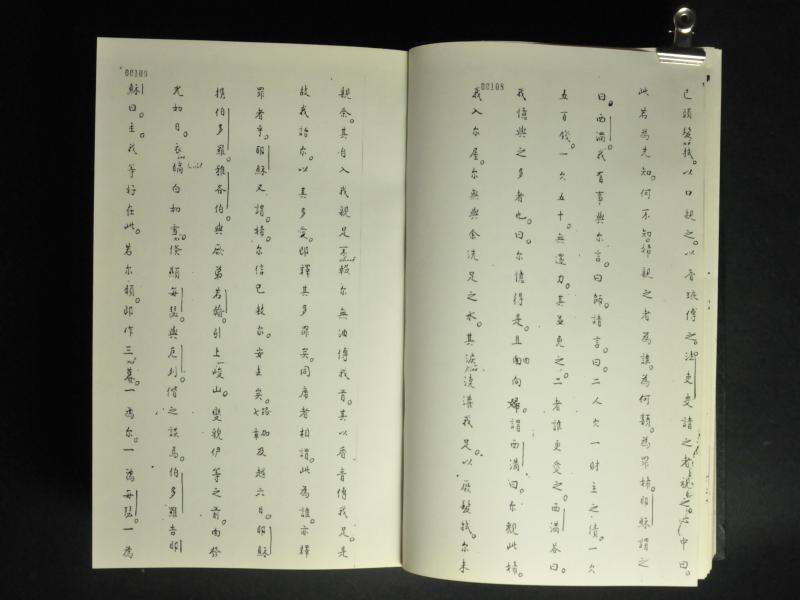 00108
已頭髮拭。以口親之。以香液傅之。法吏受請之者視之。心中曰。
此若為先知。何不知婦親之者為誰。為何類。為罪婦。耶穌謂之
曰。西滿。我有事與尔言。曰師請言。曰。二人欠一財主之債。一欠
五百錢。一欠五十。無還力。其并免之。二者誰更愛之。西滿答曰。
我憶與之多者也。曰。尔憶得是。且面向婦。謂西滿曰。尔觀此婦。
我入尔屋。尔無與余洗足之水。其淚淋濯我足。以厥髮拭。尔未
00109
親余。其自入我親足不輟。尔無油傅我首。其以香膏傅我足。是
故我語尔。以其多愛。即釋其多罪矣。同席者相謂。此為誰。亦釋
罪者乎。耶穌又謂婦。尔信已救尔。安去矣。及越六日。耶穌
携伯多羅。雅各伯與厥弟若翰。引上峻山。變貌伊等之前。面發
光如日。衣縞白如雪。倏顯每瑟與厄利偕之談焉。伯多羅告耶
穌曰。主。我等好在此。若尔願。即作三幕。一為尔。一為每瑟。一為